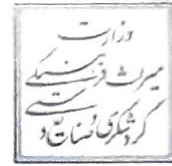 وزارت
میراث فرهنگی
گردشگری و صنایع دستی